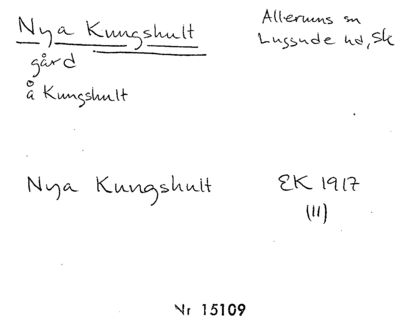 Nya Kungshult
Allerums sn
Luggude hd, Sk
gård
å Kungshult
Nya Kungshult
EK 1917
(11)
Nr 15109